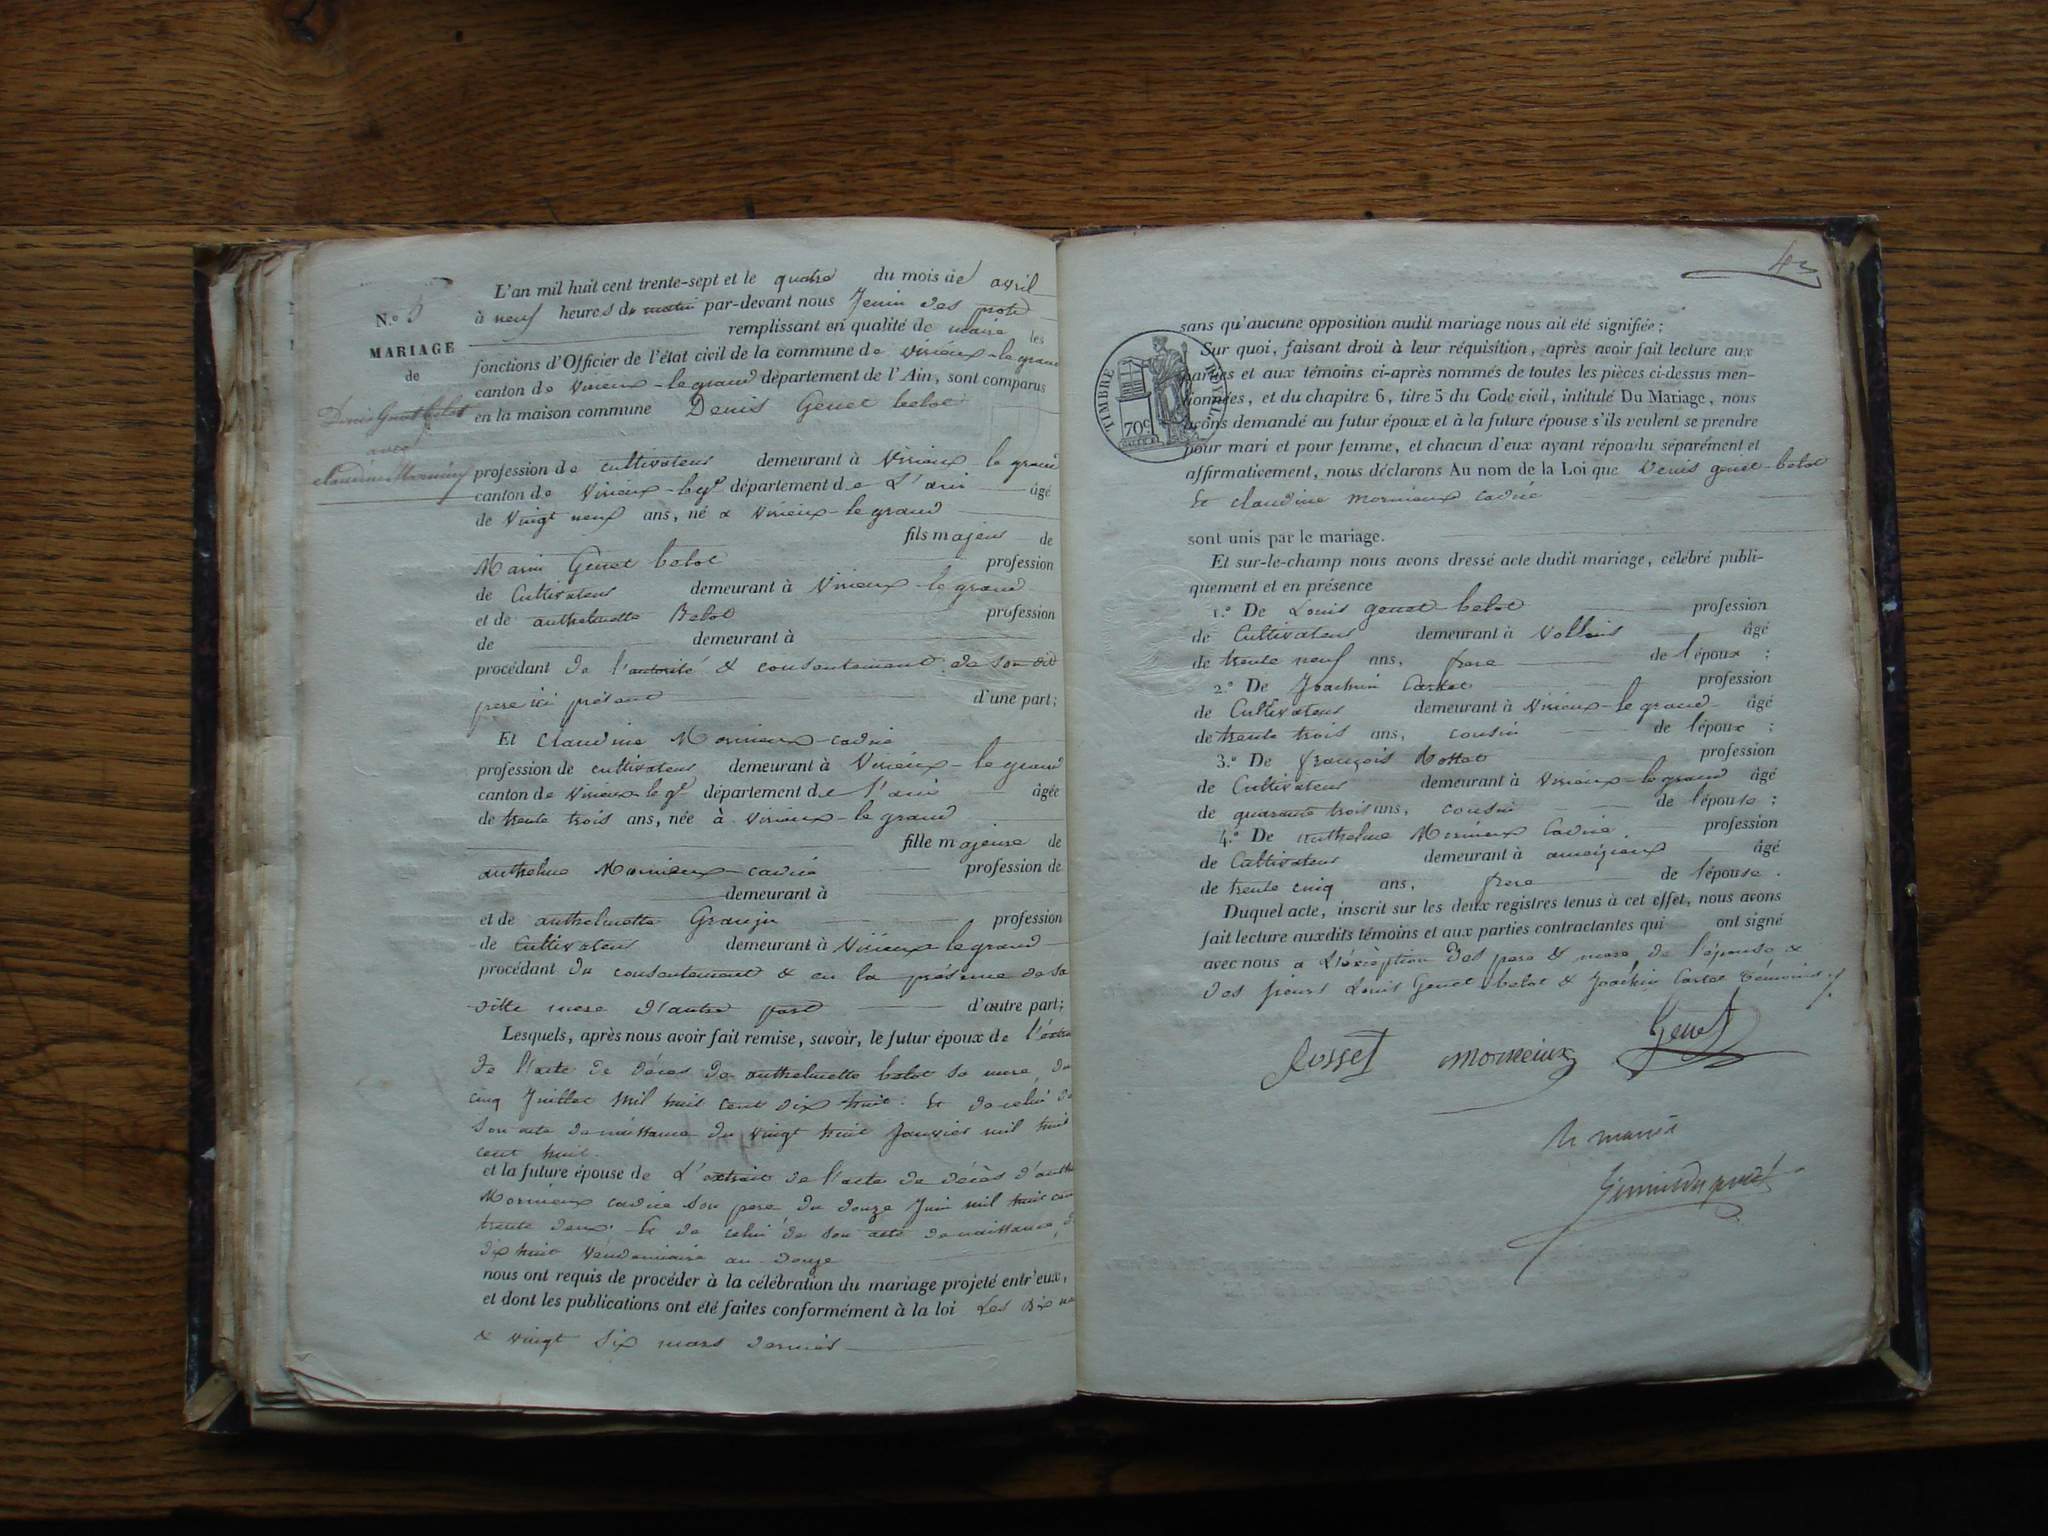 N.o 5
MARIAGE
de
Denis Genet belot
avec
claudine Mornieux
L'an mil huit cent trente-sept et le quatre du mois de avril
à neuf heures du matin par-devant nous Jenin des
remplissant en qualité de maire les
fonctions d'Officier de l'état civil de la commune de virieux-le grand
canton de virieux-le grand département de l'Ain, sont comparus
en la maison commune Denis Genet belot
profession de cultivateur demeurant à Virieux le grand
canton de Virieux-le gd département de L'ain âgé
de vingt neuf ans, né a virieux-le grand
fils majeur de
Marin Genet belot profession
de Cultivateur demeurant à Virieux-le grand
et de anthelmette Belot profession
de demeurant à
procédant de l'autorité & consentement de son dit
pere ici présent d'une part;
Et Claudine Mornieux-cadié
profession de cultivateur demeurant à Virieux-le grand
canton de Virieux-le gd département de l'ain âgée
de trente trois ans, née à virieux-le grand
fille majeure de
anthelme Mornieux-cadié profession de
demeurant à
et de anthelmette Granju profession
de Cultivateur demeurant à Virieux-le grand
procédant du consentement & en la présence de sa
ditte mere d'autre part d'autre part;
Lesquels, après nous avoir fait remise, savoir, le futur époux de l'extrai
de l'acte de décès de anthelmette belot sa mere, du
cinq Juillet mil huit cent dix huit. Et de celui de
son acte de naissance du vingt huit Janvier mil huit
cent huit.
et la future épouse de L'extrait de l'acte de décès d'anthe
Mornieux cadié son pere du douze Juin mil huit cen
trente deux. Et de celui de son acte de naissance, d
dix huit Vendemiaire an douze
nous ont requis de procéder à la célébration du mariage projeté entr'eux,
et dont les publications ont été faites conformément à la loi Les dix
& vingt six mars dernier
43
TIMBRE ROYAL
70c
sans qu'aucune opposition audit mariage nous ait été signifiée;
Sur quoi, faisant droit à leur réquisition, après avoir fait lecture aux
parties et aux témoins ci-après nommés de toutes les pièces ci-dessus men-
tionnées, et du chapitre 6, titre 5 du Code civil, intitulé Du Mariage, nous
avons demandé au futur époux et à la future épouse s'ils veulent se prendre
pour mari et pour femme, et chacun d'eux ayant répondu séparément et
affirmativement, nous déclarons Au nom de la Loi que Denis genet-belot
Et claudine mornieux cadié
sont unis par le mariage.
Et sur-le-champ nous avons dressé acte dudit mariage, célébré publi-
quement et en présence
1.o De Louis genet-belot profession
de Cultivateur demeurant à âgé
de trente neuf ans, frere de l'époux;
2.o De Joachin Cartet profession
de Cultivateur demeurant à Virieux-le grand âgé
de trente trois ans, cousin de l'époux;
3.o De françois Rosset profession
de Cultivateur demeurant à Virieux-le grand âgé
de quarante trois ans, cousin de l'épouse;
4.o De anthelme Mornieux Cadié profession
de Cultivateur demeurant à ameizieux âgé
de trente cinq ans, frere de l'épouse.
Duquel acte, inscrit sur les deux registres tenus à cet effet, nous avons
fait lecture auxdits témoins et aux parties contractantes qui ont signé
avec nous a L'exception des pere & mere, de l'épouse &
des sieurs Louis Genet-belot & Joachin Cartet témoins
Rosset mornieux Genet
le maire